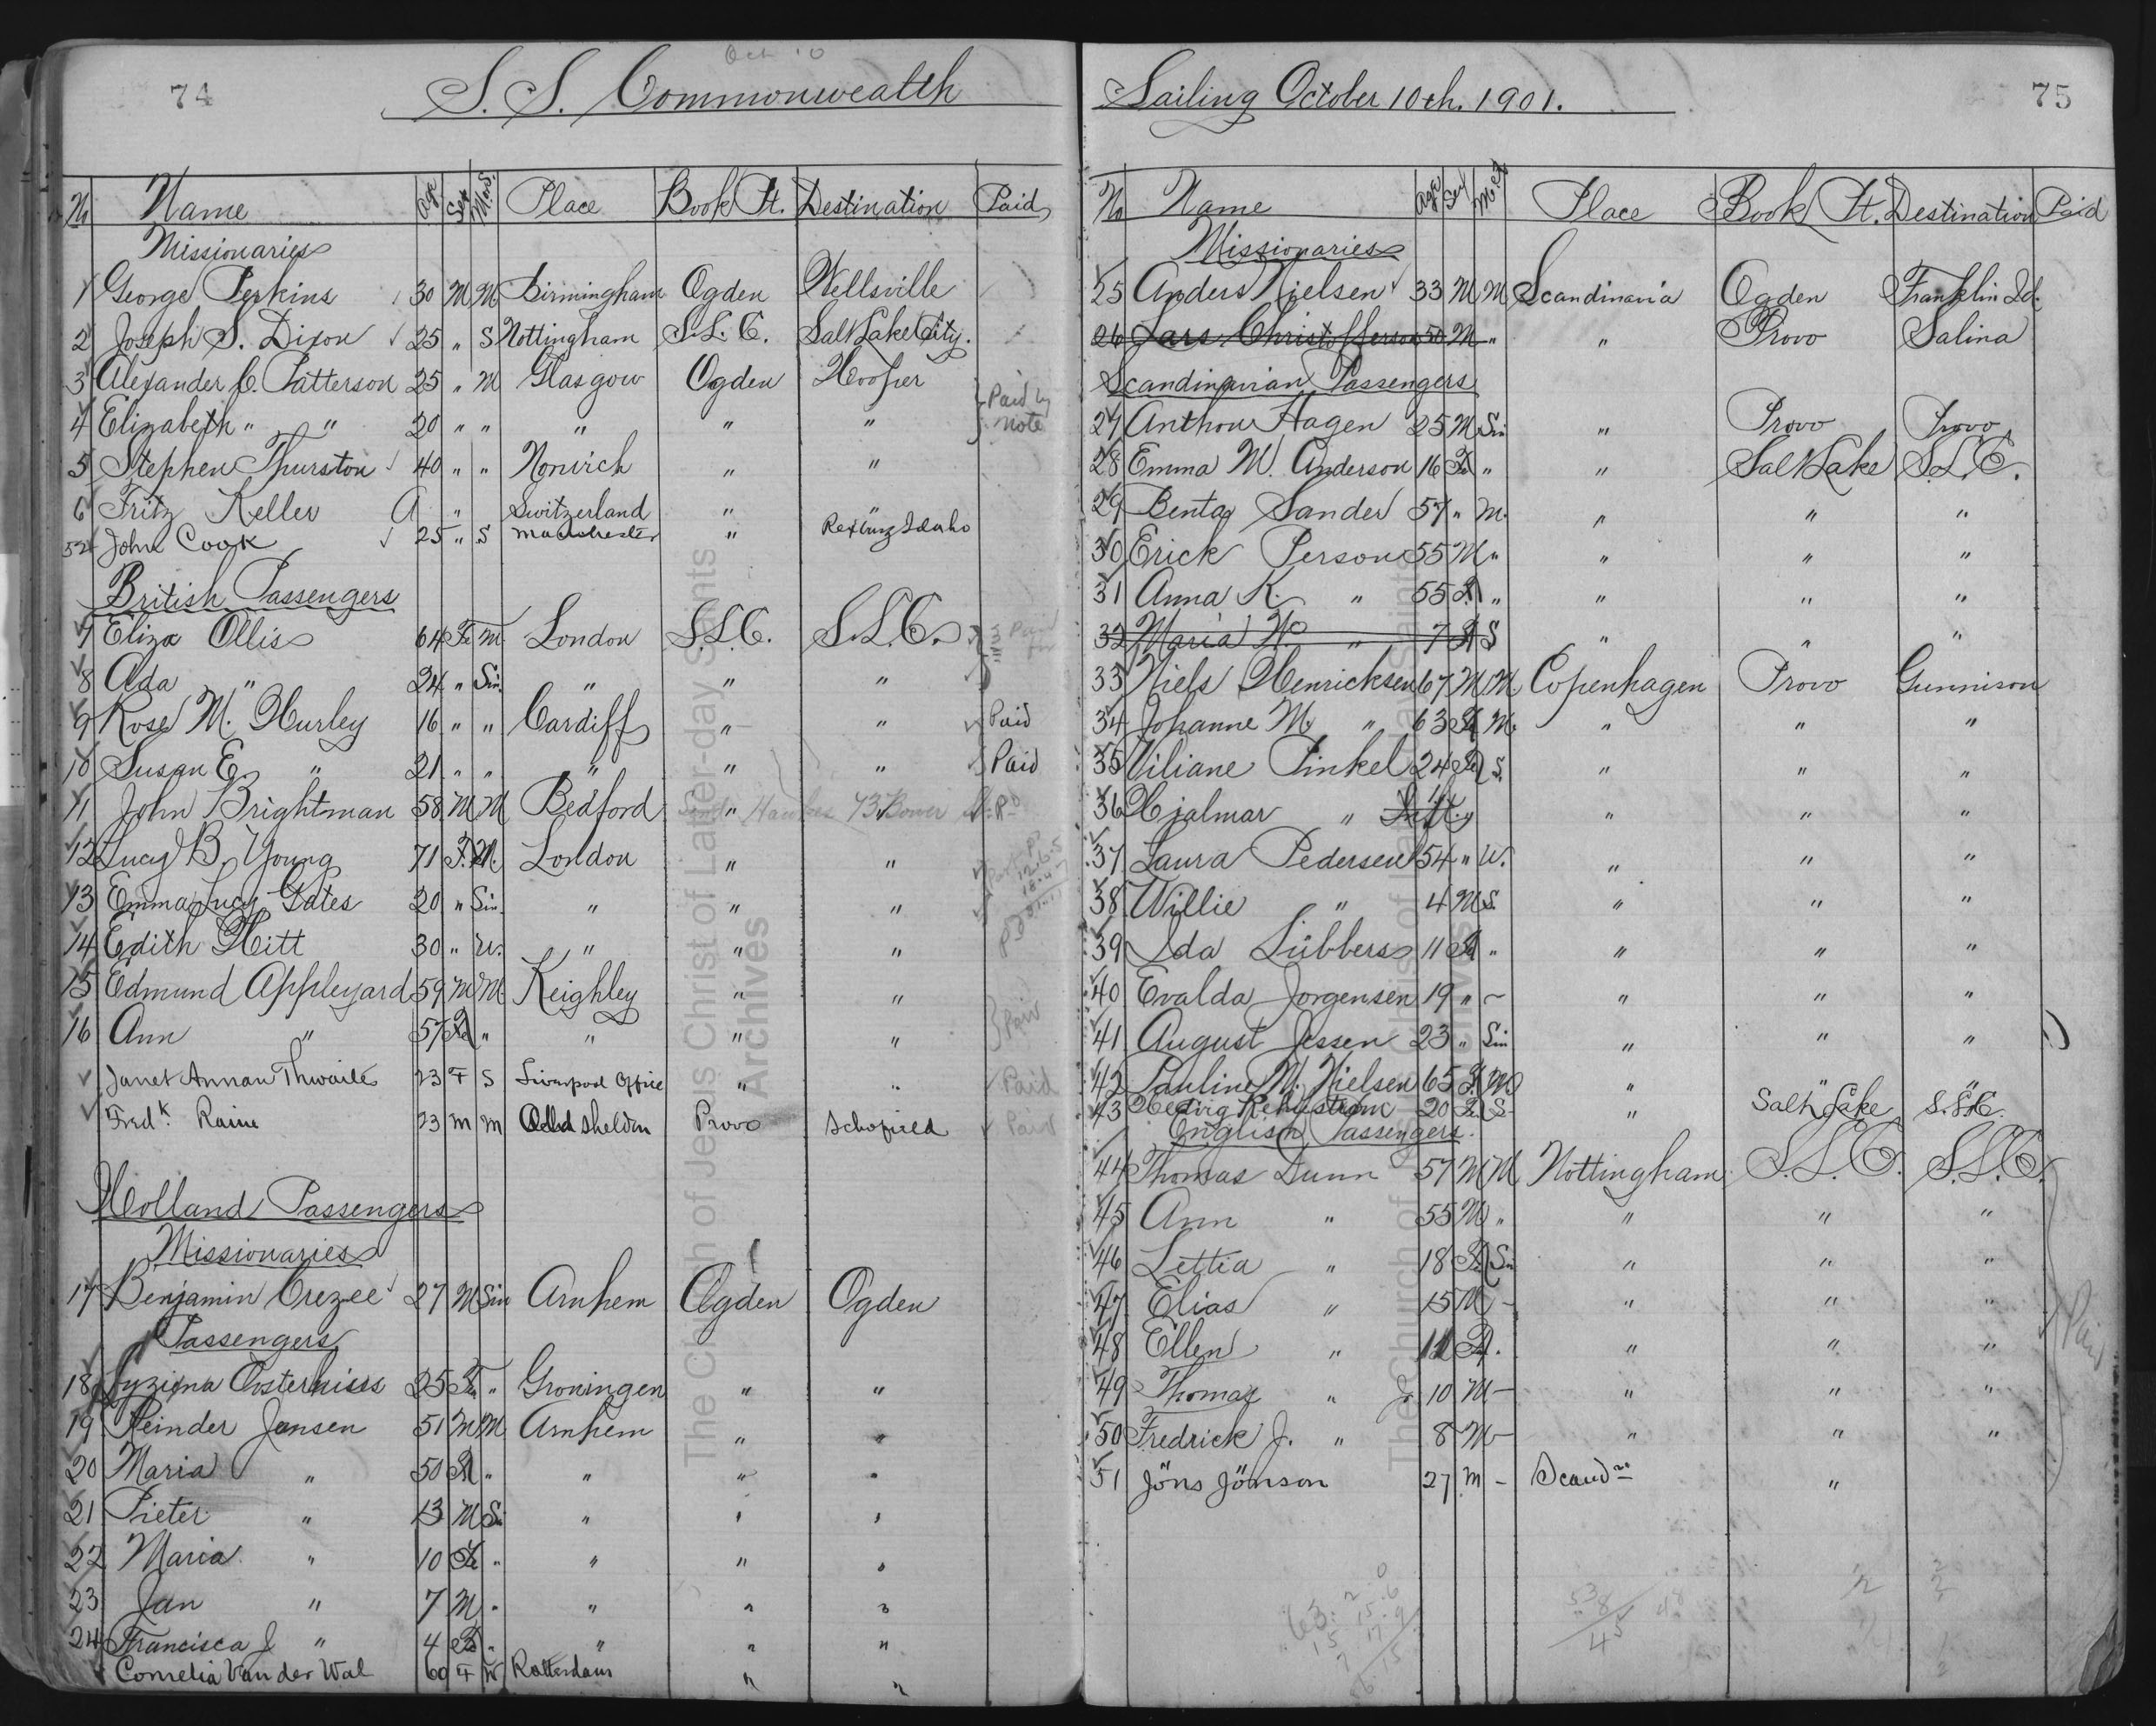 74
Oct 10
S. S. Commonwealth
No Name Age Sex M.S. Place Book Pt. Destination Paid
Missionaries
1 George Perkins 30 M M Birmingham Ogden Wellsville
2 Joseph S. Dixon 25 " S Nottingham S.L.C. Salt Lake City.
3 Alexander C. Patterson 25 " M Glasgow Ogden Hooper
Paid by note
4 Elizabeth " " 20 " " " " "
5 Stephen Thurston 40 " " Norwich " "
6 Fritz Keller A " Switzerland " "
52 John Cook 25 " S Manchester " Rexburg Idaho
British Passengers
7 Eliza Ollis 64 Fe M London S.L.C. S.L.C.
8 Ada " 24 " Sin. " " "
9 Rose M. Hurley 16 " " Cardiff " " Paid
10 Susan E. " 21 " " " " " Paid
11 John Brightman 58 M M Bedford "
12 Lucy B. Young 71 F. M. London " "
13 Emma Lucy Gates 20 " Sin. " " "
14 Edith Hitt 30 " W. " " "
15 Edmund Appleyard 59 M M Keighley " "
Paid
16 Ann " 57 Fe " " " "
Janet Annan Thwaites 23 F S Liverpool Office " " Paid
Fredk Raine 23 M M Sheldon Provo Schofield Paid
Holland Passengers
Missionaries
17 Benjamin Crezee 27 M Sin Arnhem Ogden Ogden
Passengers
18 25 Fe " Groningen " "
19 Reinder Jansen 51 M M Arnhem " "
20 Maria " 50 Fe " " " "
21 Pieter " 13 M Si " " "
22 Maria " 10 Fe " " " "
23 Jan " 7 M " " " "
24 Francisca J " 4 Fe " " " "
Cornelia Van der Wal 60 F W Rotterdam " "
75
Sailing October 10th. 1901.
No Name Age Sex M.S. Place Book Pt. Destination Paid
Missionaries
25 Anders Nielsen 33 M M Scandinavia Ogden Franklin Id.
26 Lars Christofferson 50 M " " Provo Salina
Scandinavian Passengers
27 Anthon Hagen 25 M Sin " Provo Provo
28 Emma M. Anderson 16 Fe " " Salt Lake S.L.C.
29 Benta Sander 57 " M. " " "
30 Erick Person 55 M " " " "
31 Anna K. " 55 F. " " " "
32 Maria W. " 7 Fe S " " "
33 Niels Henricksen 67 M M Copenhagen Provo Gunnison
34 Johanne M. " 63 Fe M. " " "
35 Viliane Pinkel 24 Fe S. " " "
36 Hjalmar " " " "
37 Laura Pedersen 54 " W. " " "
38 Willie " 4 M S. " " "
39 Ida Lübbers 11 Fe " " " "
40 Evalda Jorgensen 19 " - " " "
41 August Jessen 23 " Sin " " "
42 Pauline M. Nielsen 65 F. M " " "
43 Hedvig 20 Fe S- " Salt Lake S.L.C.
English Passengers.
44 Thomas Dunn 57 M M Nottingham S.L.C. S.L.C.
45 Ann " 55 M " " " "
46 Lettia " 18 Fe Sin " " "
47 Elias " 15 M - " " "
Paid
48 Ellen " 11 Fe. " " "
49 Thomas " Jr 10 M - " " "
50 Fredrick J. " 8 M - " " "
51 Jöns Jönson 27 M - Scandn "
538
48
45
The Church of Jesus Christ of Latter-day Saints
Archives
The Church of Jesus Christ of Latter-day Saints
Archives